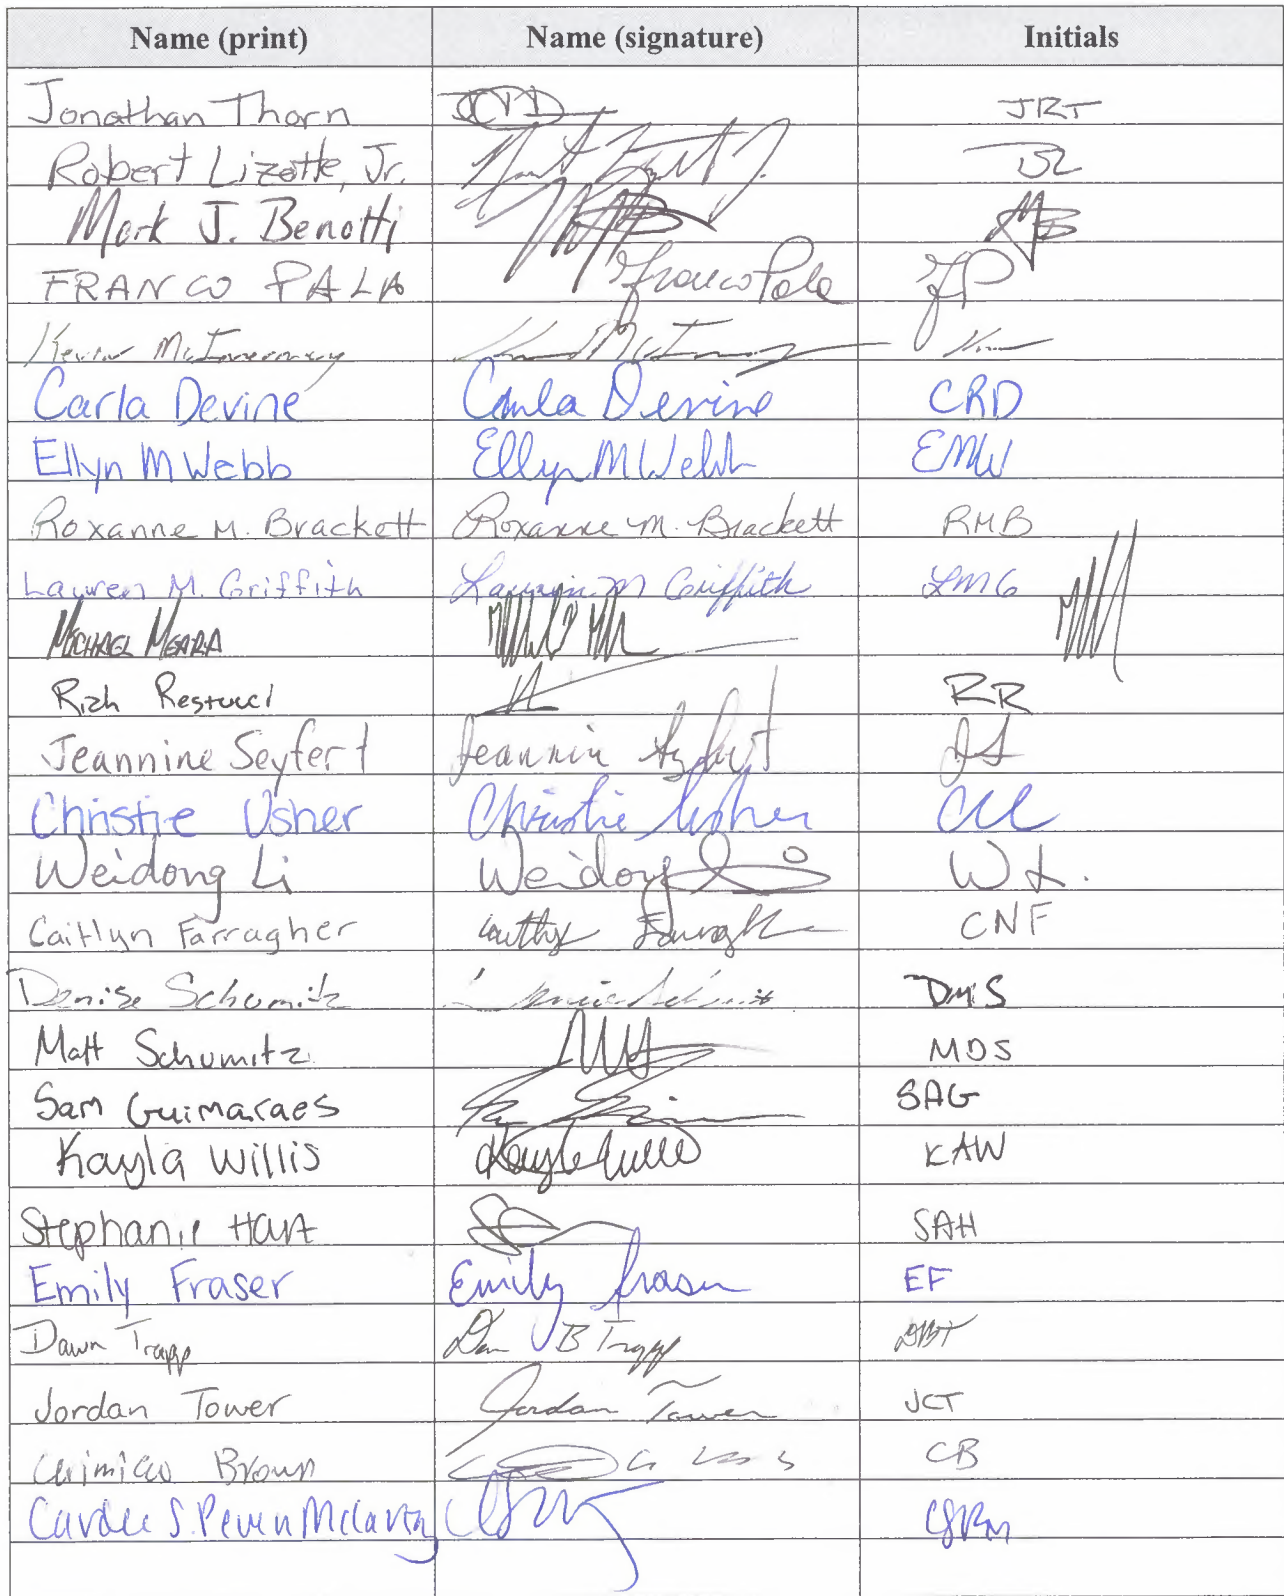 Name (print) Name (signature) Initials
Jonathan Thorn JRT
Robert Lizotte, Jr.
Mark J. Benotti MJB
FRANCO PALA Franco Pala FP
Kevin McInerney
Carla Devine Carla Devine CRD
Ellyn M Webb Ellyn M Webb EMW
Roxanne M. Brackett Roxanne M. Brackett RMB
Lauren M. Griffith Lauren M Griffith LMG
MICHAEL MEARA
Rich Restucci RR
Jeannine Seyfert Jeannine Seyfert JS
Christie Usher Christie Usher CU
Weidong Li Weidong Li W L.
Caitlyn Farragher CNF
Denise Schumitz Denise Schumitz DMS
Matt Schumitz MDS
Sam Guimaraes SAG
Kayla Willis Kayla Willis KAW
Stephanie Hart SAH
Emily Fraser Emily Fraser EF
Dawn Trapp Dawn B Trapp DBT
Jordan Tower Jordan Tower JCT
Brown CB
S. Peven McCarthy